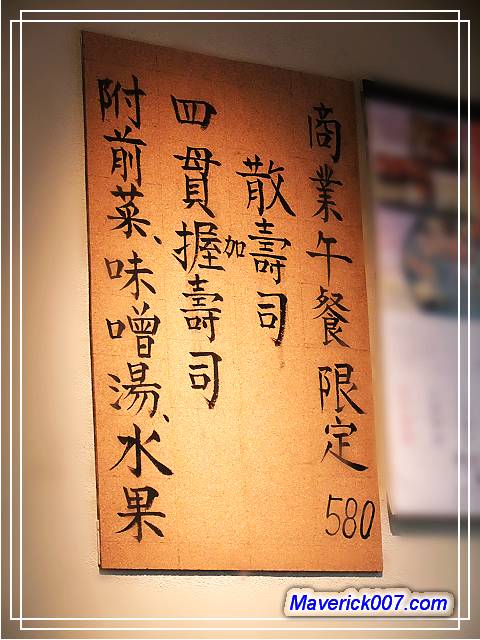 商業午餐限定 580
散壽司
加
四貫握壽司
附前菜、味噌湯、水果
Maverick007.com